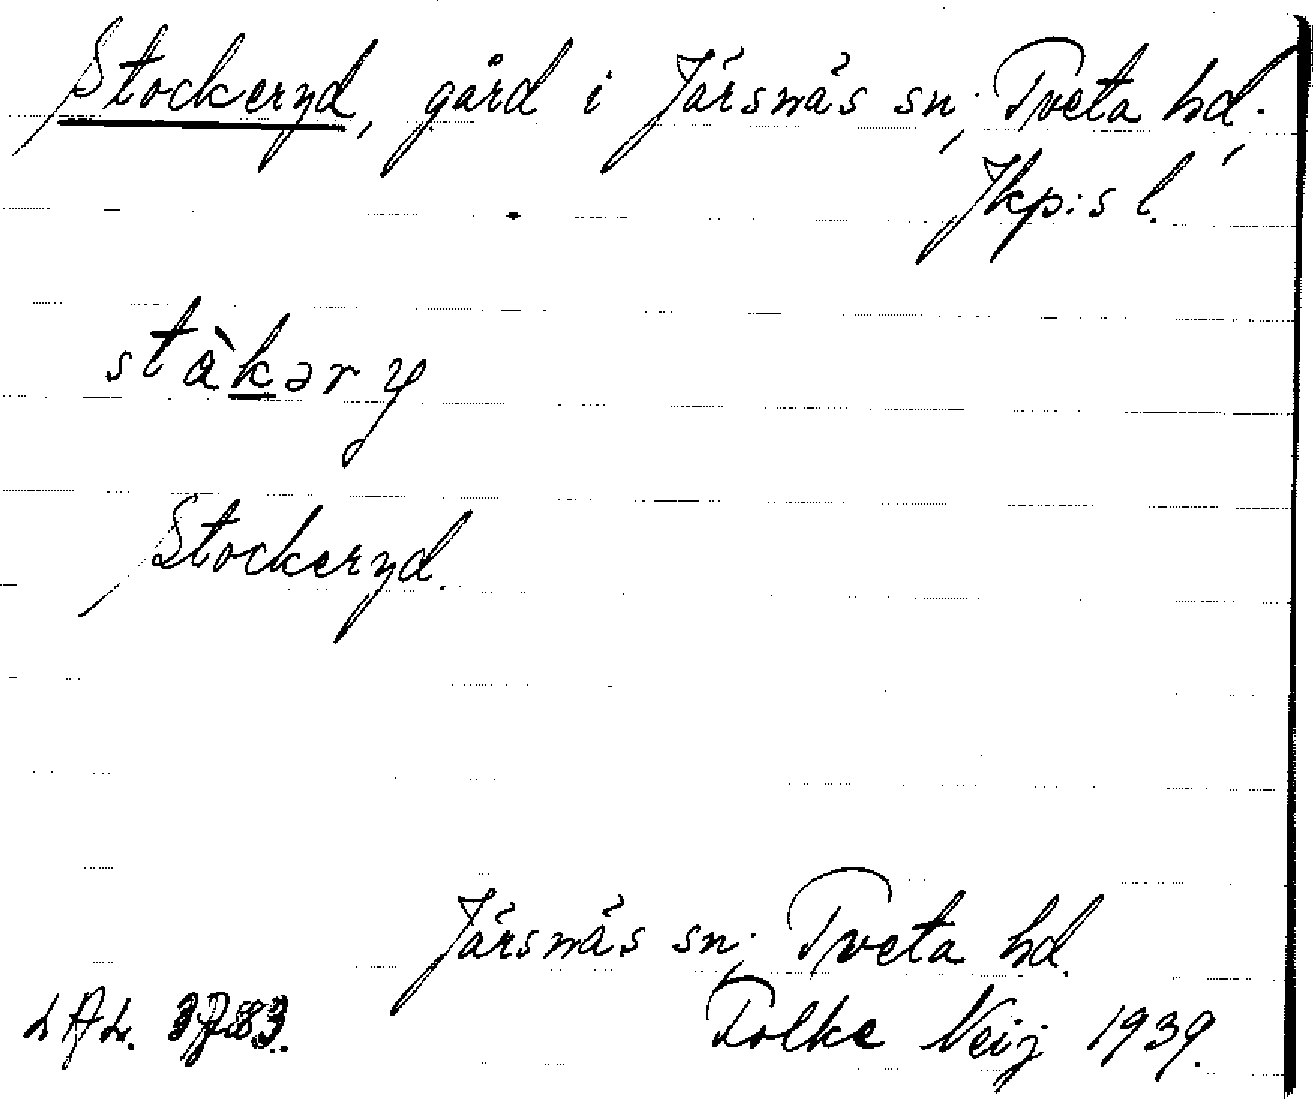 Stockeryd, gård i Järsnäs sn, Tveta hd,
Jkp:s l.
stàkəry
Stockeryd.
Järsnäs sn, Tveta hd.
Folke Neij 1939.